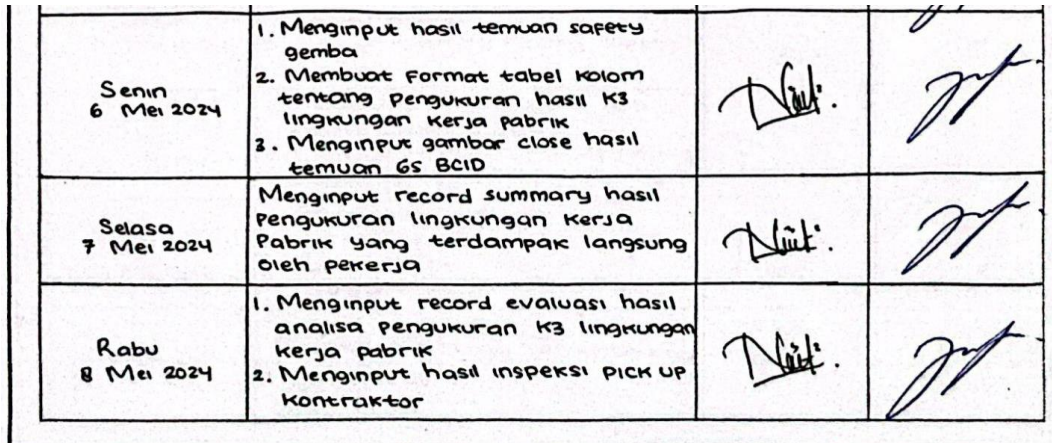 Senin
6 Mei 2024
1. Menginput hasil temuan safety
gemba
2. Membuat Format tabel kolom
tentang pengukuran hasil K3
lingkungan kerja pabrik
3. Menginput gambar close hasil
temuan 6S BCID
Selasa
7 Mei 2024
Menginput record summary hasil
Pengukuran lingkungan kerja
Pabrik yang terdampak langsung
oleh pekerja
Rabu
8 Mei 2024
1. Menginput record evaluasi hasil
analisa pengukuran K3 lingkungan
kerja pabrik
2. Menginput hasil inspeksi PICK UP
Kontraktor